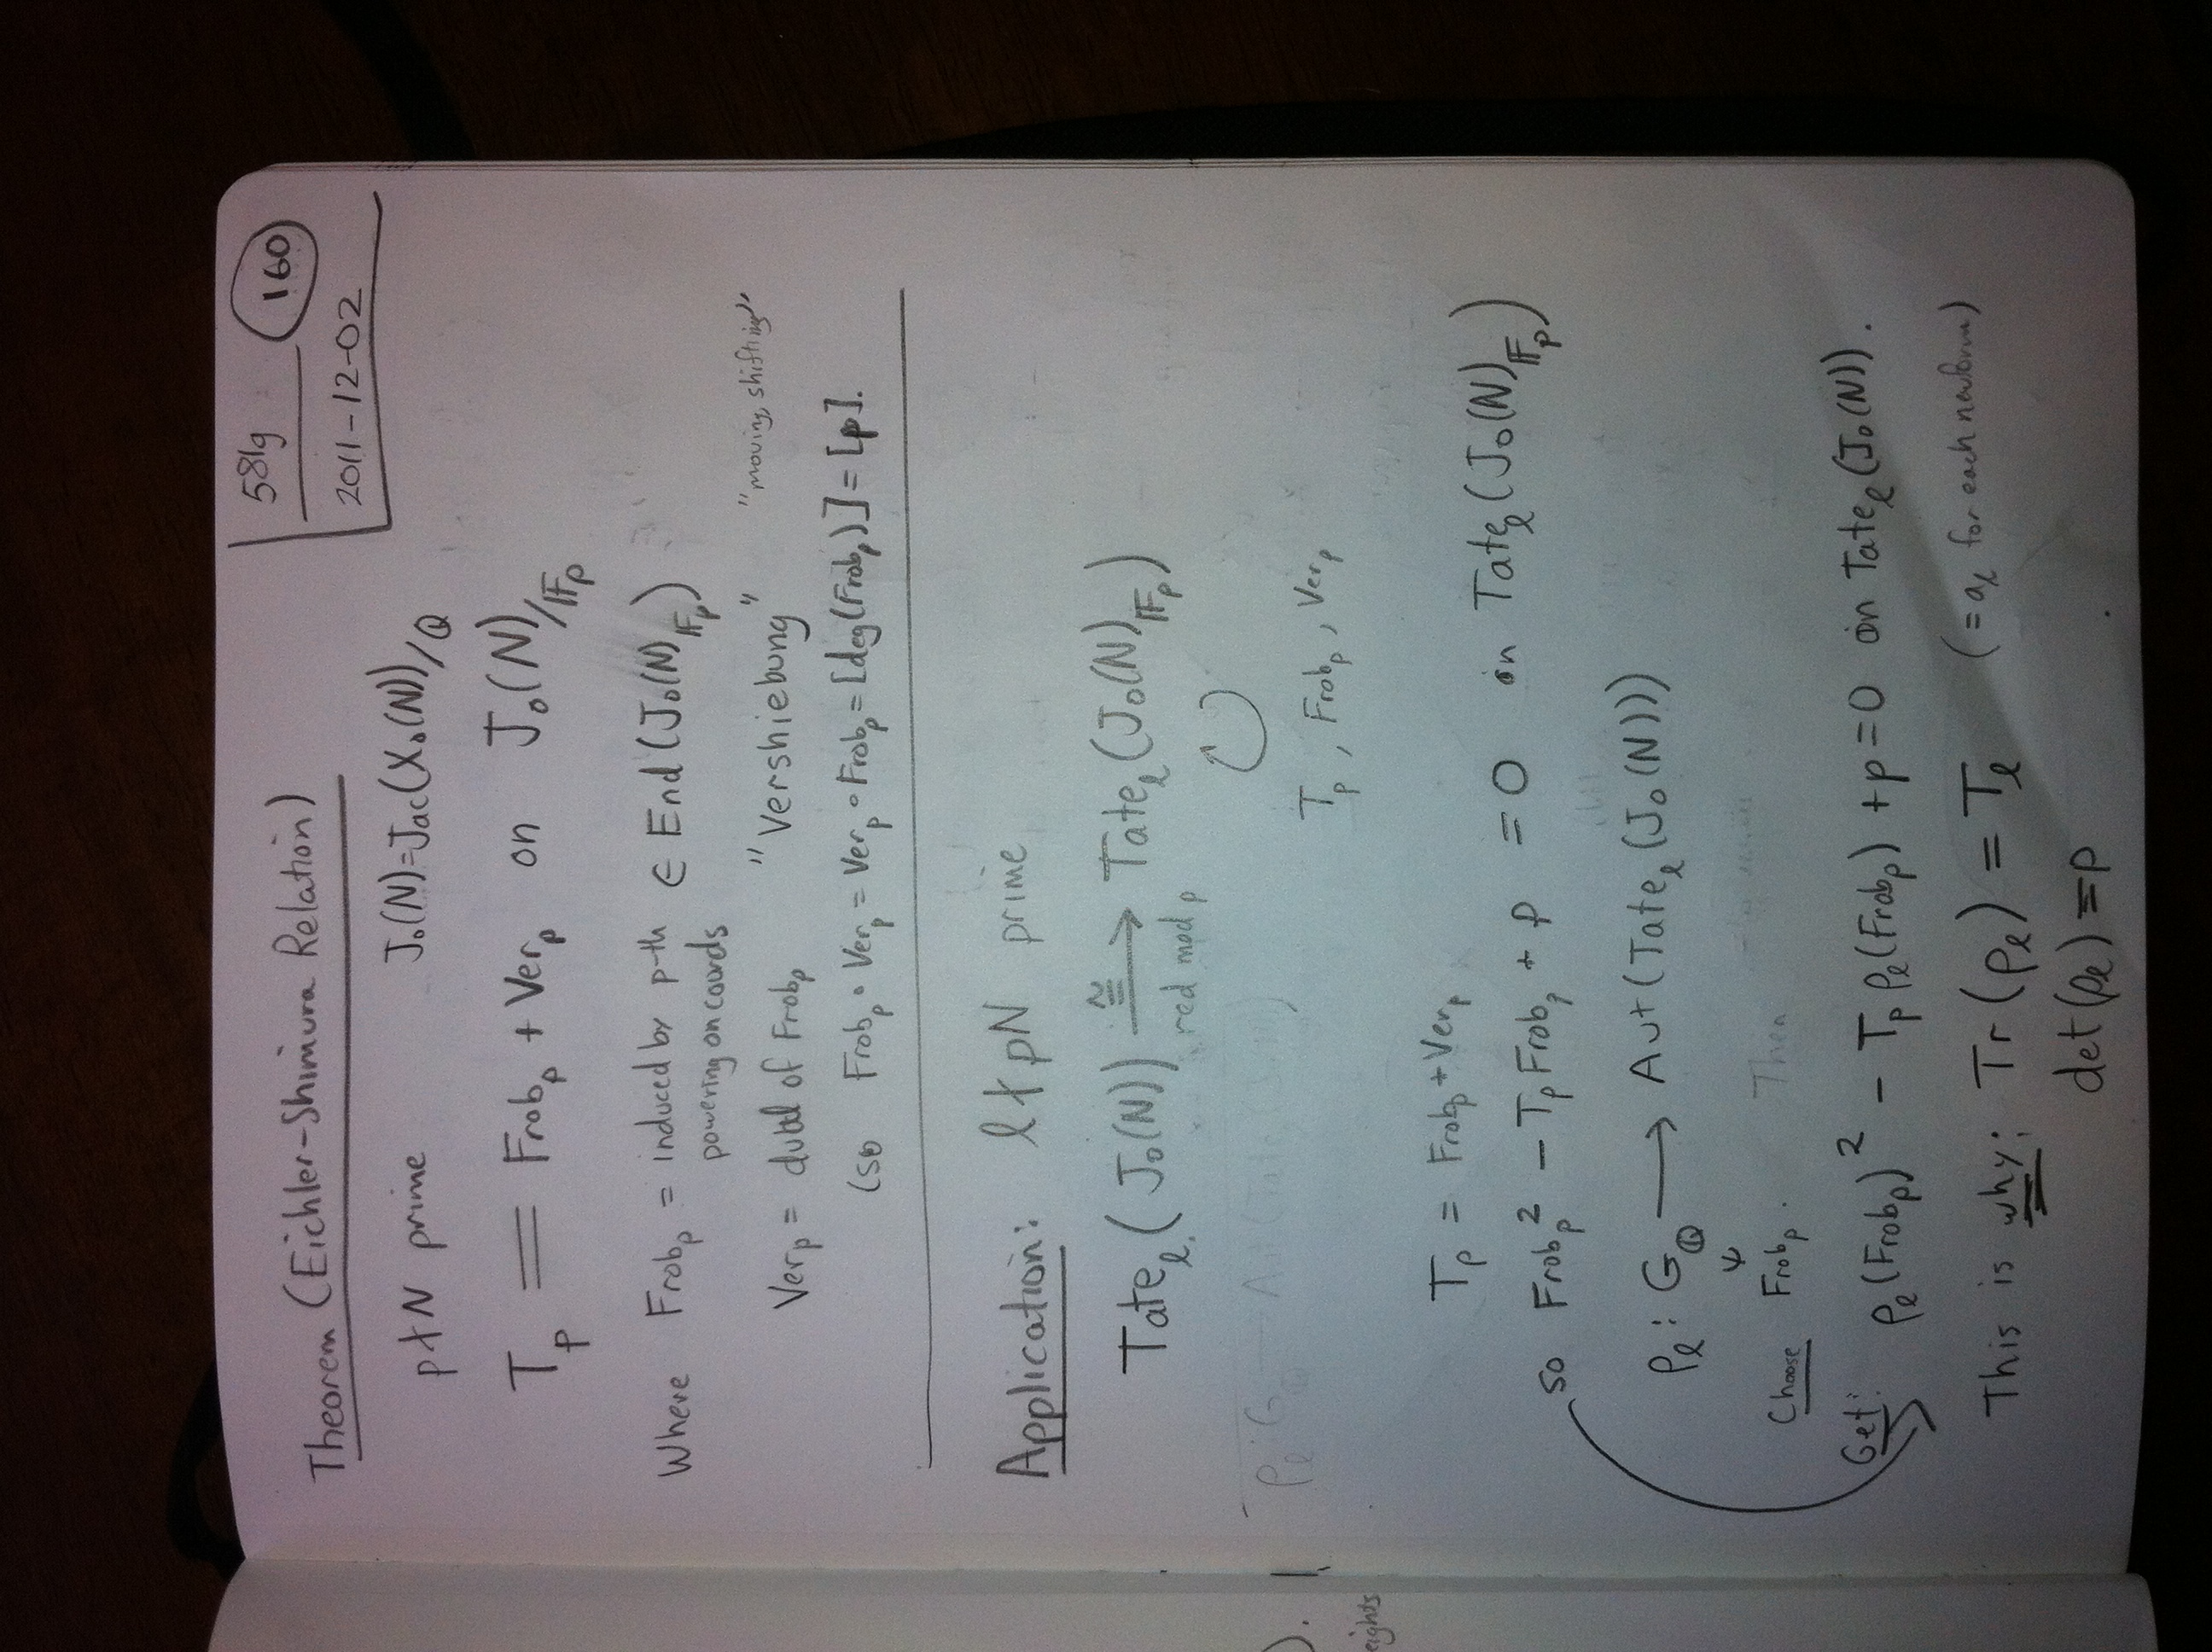 581g 160
2011-12-02
Theorem (Eichler-Shimura Relation)
p∤N prime J₀(N)=Jac(X₀(N))/ℚ
T_p = Frob_p + Ver_p on J₀(N)/𝔽_p
Where Frob_p = induced by p-th powering on coords ∈ End(J₀(N)_𝔽_p)
Ver_p = dual of Frob_p "Vershiebung" "moving, shifting"
(so Frob_p ∘ Ver_p = Ver_p ∘ Frob_p = [deg(Frob_p)] = [p].
Application: ℓ∤pN prime
Tate_ℓ(J₀(N)) ≅⟶ Tate_ℓ(J₀(N)_𝔽_p)
red mod p
T_p, Frob_p, Ver_p
T_p = Frob_p + Ver_p
so Frob_p² - T_p Frob_p + p = 0 on Tate_ℓ(J₀(N)_𝔽_p)
ρ_ℓ : G_ℚ ⟶ Aut(Tate_ℓ(J₀(N)))
Choose Frob_p. Then
Get: ρ_ℓ(Frob_p)² - T_p ρ_ℓ(Frob_p) + p = 0 on Tate_ℓ(J₀(N)).
This is why: Tr(ρ_ℓ) = T_ℓ (= a_ℓ for each newform)
det(ρ_ℓ) = p
eights